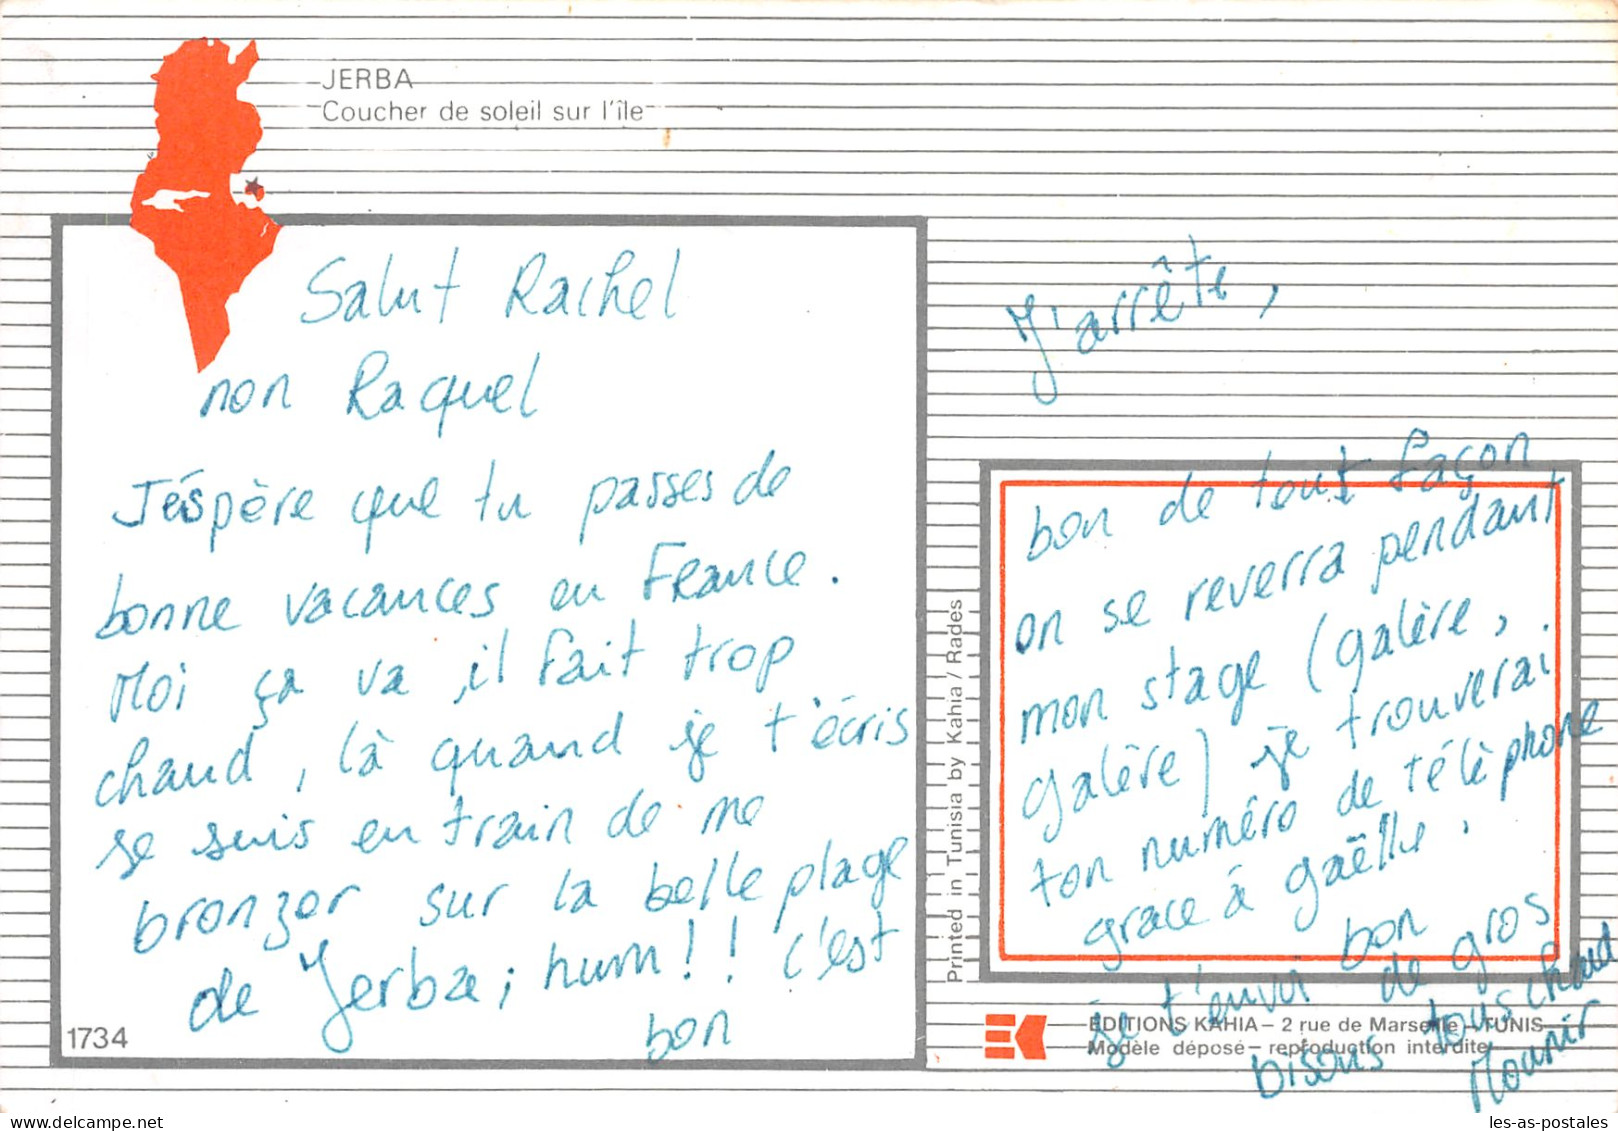 JERBA
Coucher de soleil sur l'île
Salut Rachel
non Raquel
J'éspère que tu passes de
bonne vacances en France.
Moi ça va, il fait trop
chaud, là quand je t'écris
je suis en train de me
bronzer sur la belle plage
de Jerba; hum!! c'est
bon
1734
J'arrête,
bon de tout façon
on se reverra pendant
mon stage (galère,
galère) je trouverai
ton numéro de télèphone
grace à gaëlle.
je t'envoi bon
de gros
bisous tous chaud
Mounir
Printed in Tunisia by Kahia / Rades
EDITIONS KAHIA - 2 rue de Marseille - TUNIS
Modèle déposé - reproduction interdite
les-as-postales